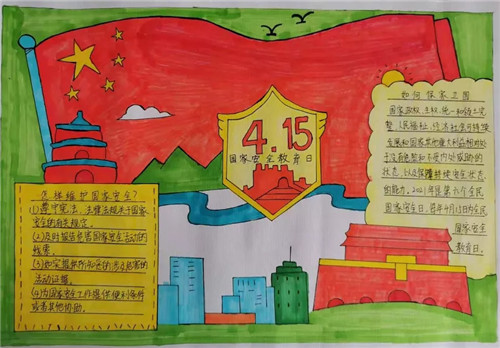 4.15
国家安全教育日
怎样维护国家安全?
(1)遵守宪法、法律法规关于国家
安全的有关规定.
(2)及时报告危害国家安全活动的
线索.
(3)如实提供所知悉的涉及危害的
活动证据.
(4)为国家安全工作提供便利条件
或者其他协助.
如何保家卫国
国家政权、主权、统一和领土完
整、人民福祉、经济社会可持续
发展和国家其他重大利益相对处
于没有危险和不受内外威胁的
状态,以及保障持续安全状态
的能力。2021年是第六个全民
国家安全日。每年4月15日为全民
国家安全
教育日.